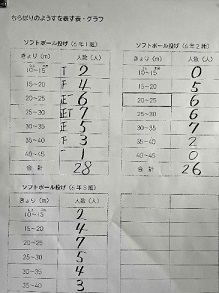 ちらばりのようすを表す表・グラフ
ソフトボール投げ(6年1組)
きょり(m) 人数(人)
10~15 T 2
15~20 F 4
20~25 正T 7
25~30 正 6
30~35 正T 7
35~40 F 3
40~45
合計 28
ソフトボール投げ(6年2組)
きょり(m) 人数(人)
10~15 0
15~20 5
20~25 6
25~30 6
30~35 7
35~40 2
40~45 0
合計 26
ソフトボール投げ(6年3組)
きょり(m) 人数(人)
10~15 2
15~20 4
20~25 7
25~30 5
30~35 4
35~40 3